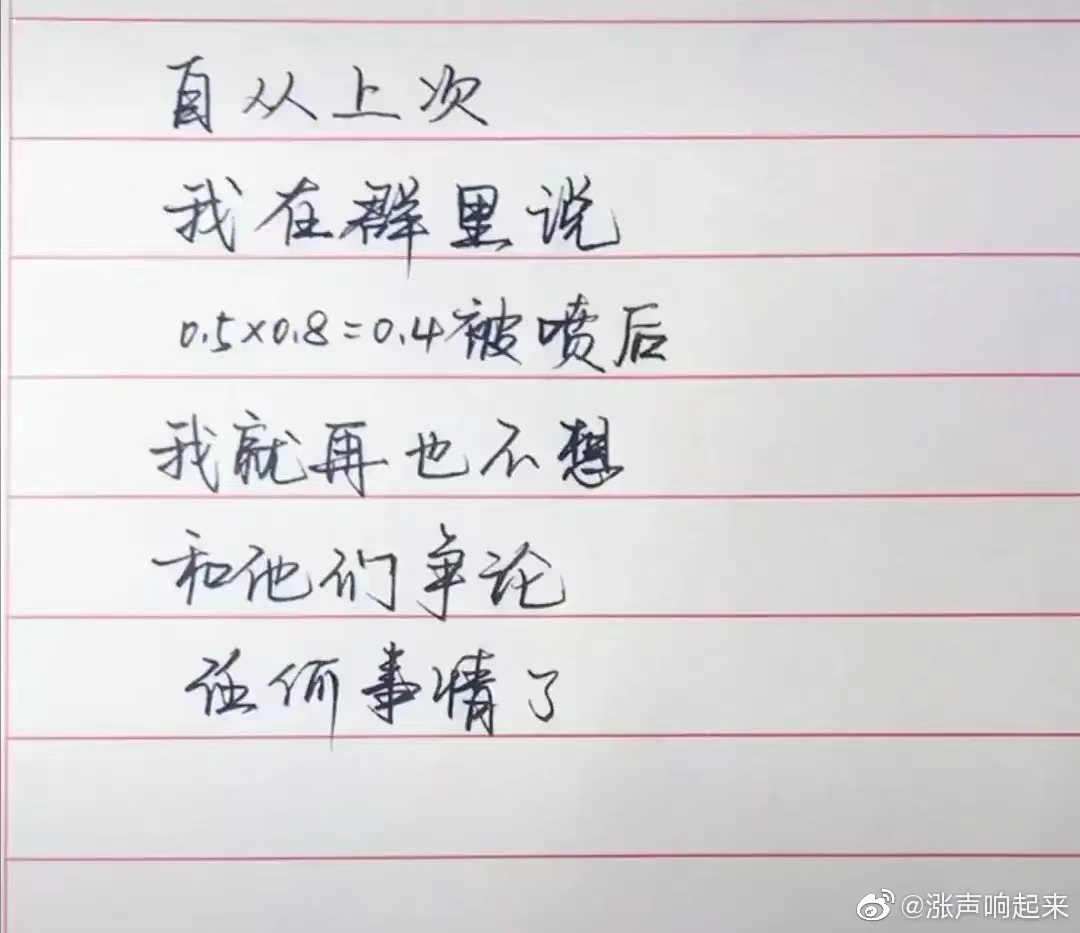 自从上次
我在群里说
0.5×0.8=0.4被喷后
我就再也不想
和他们争论
任何事情了
@涨声响起来